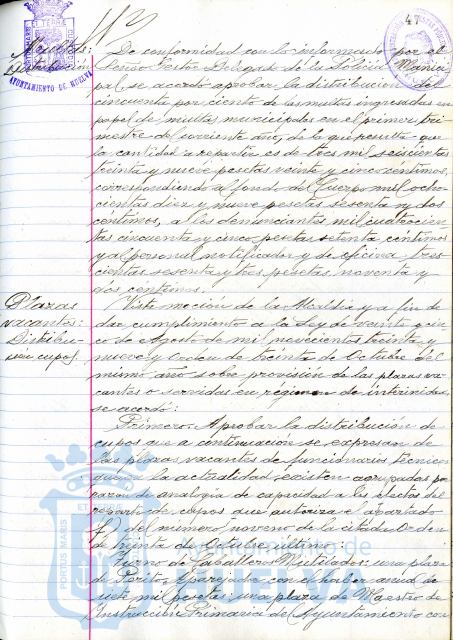 47
AYUNTAMIENTO DE HUELVA
Multas:
Distribución
De conformidad con lo informado por el
Señor Gestor Delegado de la Policía Munici-
pal, se acordó aprobar la distribución del
cincuenta por ciento de las multas ingresadas en
papel de multas municipales en el primer tri-
mestre del corriente año, de lo que resulta que
la cantidad a repartir es de tres mil seiscientas
treinta y nueve pesetas veinte y cinco centimos,
correspondiendo al fondo del Cuerpo mil ocho-
cientas diez y nueve pesetas sesenta y dos
céntimos, a los denunciantes mil cuatrocien-
tas cincuenta y cinco pesetas setenta céntimos
y al personal notificador y de oficina tres-
cientas sesenta y tres pesetas noventa y
dos centimos.
Plazas
vacantes:
Distribu-
ción cupos.
Vista moción de la Alcaldía y a fin de
dar cumplimiento a la Ley de veinte y cin-
co de Agosto de mil novecientos treinta y
nueve y Orden de treinta de Octubre del
mismo año sobre provisión de las plazas va-
cantes o servidas en régimen de interinidad,
se acordó:
Primero: Aprobar la distribución de
cupos que a continuación se expresan de
las plazas vacantes de funcionarios técnicos
que en la actualidad existen agrupadas por
razon de analogía de capacidad a los efectos del
reparto de cupos que autoriza el apartado
f) del número noveno de la citada Orden
de treinta de Octubre último:
Turno de Caballeros Mutilados: una plaza
de Perito Aparejador con el haber anual de
siete mil pesetas: una plaza de Maestro de
Instrucción Primaria de Ayuntamiento con
PORTUS MARIS
Ayuntamiento de
HUELVA